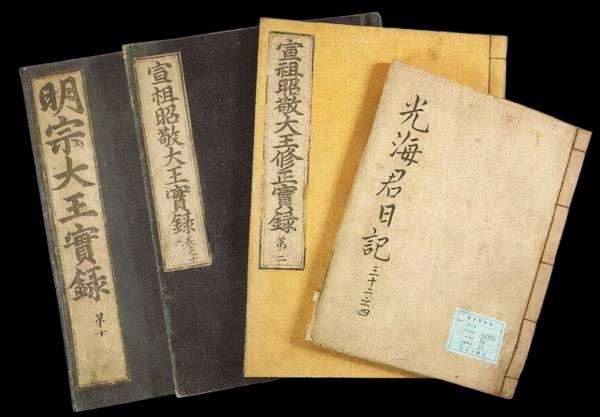 明宗大王實錄
第十
宣祖昭敬大王實錄
卷之十六
宣祖昭敬大王修正實錄
第二
光海君日記
三十二之四